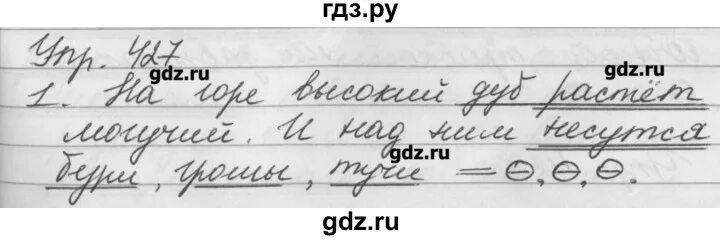 гдз.ру
Упр. 427
gdz.ru
gdz.ru
1. На горе высокий дуб растёт
могучий. И над ним несутся
gdz.ru
бури, грозы, тучи = ⊖, ⊖, ⊖.
gdz.ru